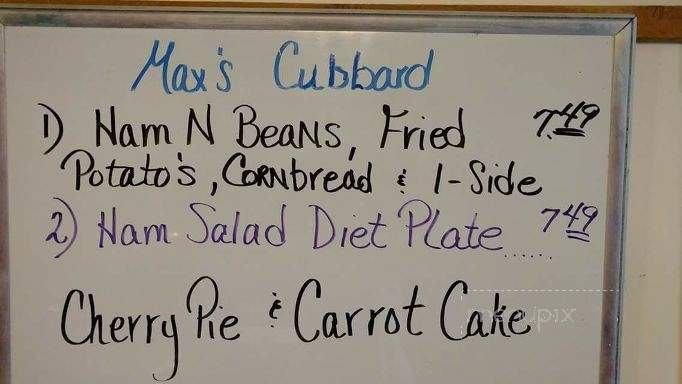 Max's Cubbard
1) Ham N Beans, Fried 7.49
Potato's, Cornbread & 1-Side
2) Ham Salad Diet Plate...... 7 49
Cherry Pie & Carrot Cake